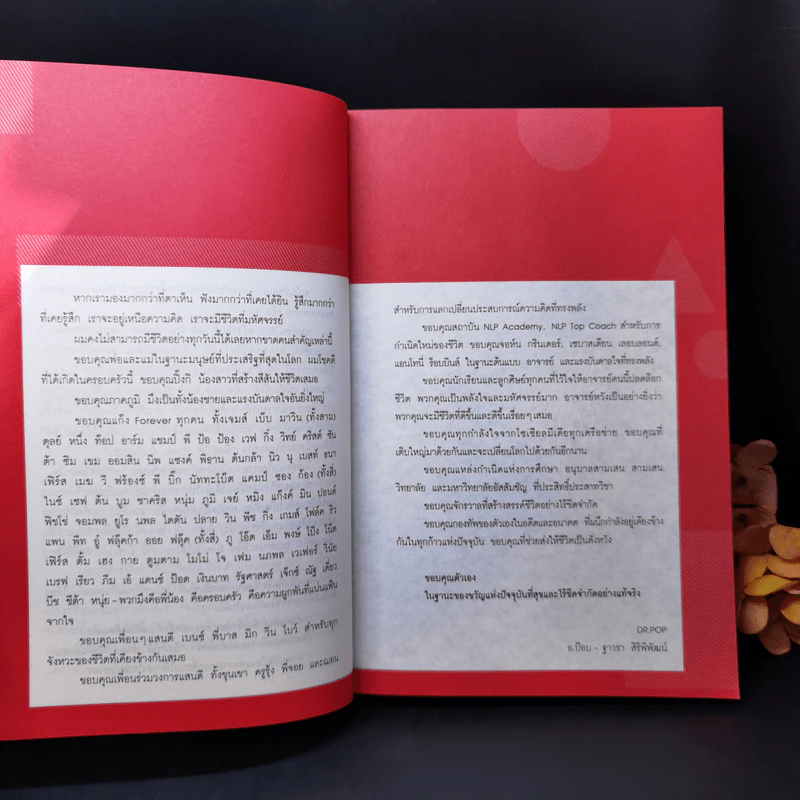 หากเรามองมากกว่าที่ตาเห็น ฟังมากกว่าที่เคยได้ยิน รู้สึกมากกว่า
ที่เคยรู้สึก เราจะอยู่เหนือความคิด เราจะมีชีวิตที่มหัศจรรย์
ผมคงไม่สามารถมีชีวิตอย่างทุกวันนี้ได้เลยหากขาดคนสำคัญเหล่านี้
ขอบคุณพ่อและแม่ในฐานะมนุษย์ที่ประเสริฐที่สุดในโลก ผมโชคดี
ที่ได้เกิดในครอบครัวนี้ ขอบคุณปิ๊งกิ น้องสาวที่สร้างสีสันให้ชีวิตเสมอ
ขอบคุณภาคภูมิ มึงเป็นทั้งน้องชายและแรงบันดาลใจอันยิ่งใหญ่
ขอบคุณแก๊ง Forever ทุกคน ทั้งเจมส์ เบ็บ มาวิน (ทั้งสาม)
ดุลย์ หนึ่ง ท็อป อาร์ม แชมป์ พี ป้อ ป้อง เวฟ กิ๋ง วิทย์ คริสต์ ซัน
ต้า ซิม เขม ออมสิน นิพ แซงค์ พิธาน ต้นกล้า นิว นุ เบสท์ ธนา
เฟิร์ส เมฆ วี ฟร้องซ์ พี บิ๊ก นัททะโบ๊ต แคมป์ ซอง ก้อง (ทั้งสี่)
ไนซ์ เซฟ ต้น บูม ชาคริส หนุ่ม ภูมิ เจย์ หมิง แก็งค์ มิน ปอนด์
พิชโช่ จอมพล ยูโร นพล ไตตัน ปลาย วิน พืช กิ่ง เกมส์ โฟล์ค ริว
แพน พีท อู๋ ฟลุ๊คก้า ออย ฟลุ๊ค (ทั้งสี่) ภู โอ๊ต เอ็ม พงษ์ โป้ง โน้ต
เฟิร์ส ตั้ม เฮง กาย ตูมตาม โมไม่ โจ เฟม นภพล เวเฟอร์ วินัย
เบรฟ เรียว ภีม เอ้ แดนซ์ ป๊อด เงินบาท รัฐศาสตร์ เจ็กซ์ ณัฐ เดี่ยว
บีซ ซีต้า หนุ่ย - พวกมึงคือพี่น้อง คือครอบครัว คือความผูกพันที่แน่นแฟ้น
จากใจ
ขอบคุณเพื่อนๆ แสนดี เบนซ์ พี่บาส มิก วิน ไบว์ สำหรับทุก
จังหวะของชีวิตที่เคียงข้างกันเสมอ
ขอบคุณเพื่อนร่วมวงการแสนดี ทั้งขุนเขา ครูรุ้ง พี่จอย และฌอน
สำหรับการแลกเปลี่ยนประสบการณ์ความคิดที่ทรงพลัง
ขอบคุณสถาบัน NLP Academy, NLP Top Coach สำหรับการ
กำเนิดใหม่ของชีวิต ขอบคุณจอห์น กรินเดอร์, เซบาสเตียน เลอบลอนด์,
แอนโทนี่ ร็อบบินส์ ในฐานะต้นแบบ อาจารย์ และแรงบันดาลใจที่ทรงพลัง
ขอบคุณนักเรียนและลูกศิษย์ทุกคนที่ไว้ใจให้อาจารย์คนนี้ปลดล็อก
ชีวิต พวกคุณเป็นพลังใจและมหัศจรรย์มาก อาจารย์หวังเป็นอย่างยิ่งว่า
พวกคุณจะมีชีวิตที่ดีขึ้นและดีขึ้นเรื่อยๆ เสมอ
ขอบคุณทุกกำลังใจจากโซเชียลมีเดียทุกเครือข่าย ขอบคุณที่
เติบใหญ่มาด้วยกันและจะเปลี่ยนโลกไปด้วยกันอีกนาน
ขอบคุณแหล่งกำเนิดแห่งการศึกษา อนุบาลสามเสน สามเสน
วิทยาลัย และมหาวิทยาลัยอัสสัมชัญ ที่ประสิทธิ์ประสาทวิชา
ขอบคุณจักรวาลที่สร้างสรรค์ชีวิตอย่างไร้ขีดจำกัด
ขอบคุณกองทัพของตัวเองในอดีตและอนาคต ที่ผนึกกำลังอยู่เคียงข้าง
กันในทุกก้าวแห่งปัจจุบัน ขอบคุณที่ช่วยส่งให้ชีวิตเป็นดังหวัง
ขอบคุณตัวเอง
ในฐานะของขวัญแห่งปัจจุบันที่สุขและไร้ขีดจำกัดอย่างแท้จริง
DR.POP
อ.ป๊อบ - ฐาวรา สิริพิพัฒน์